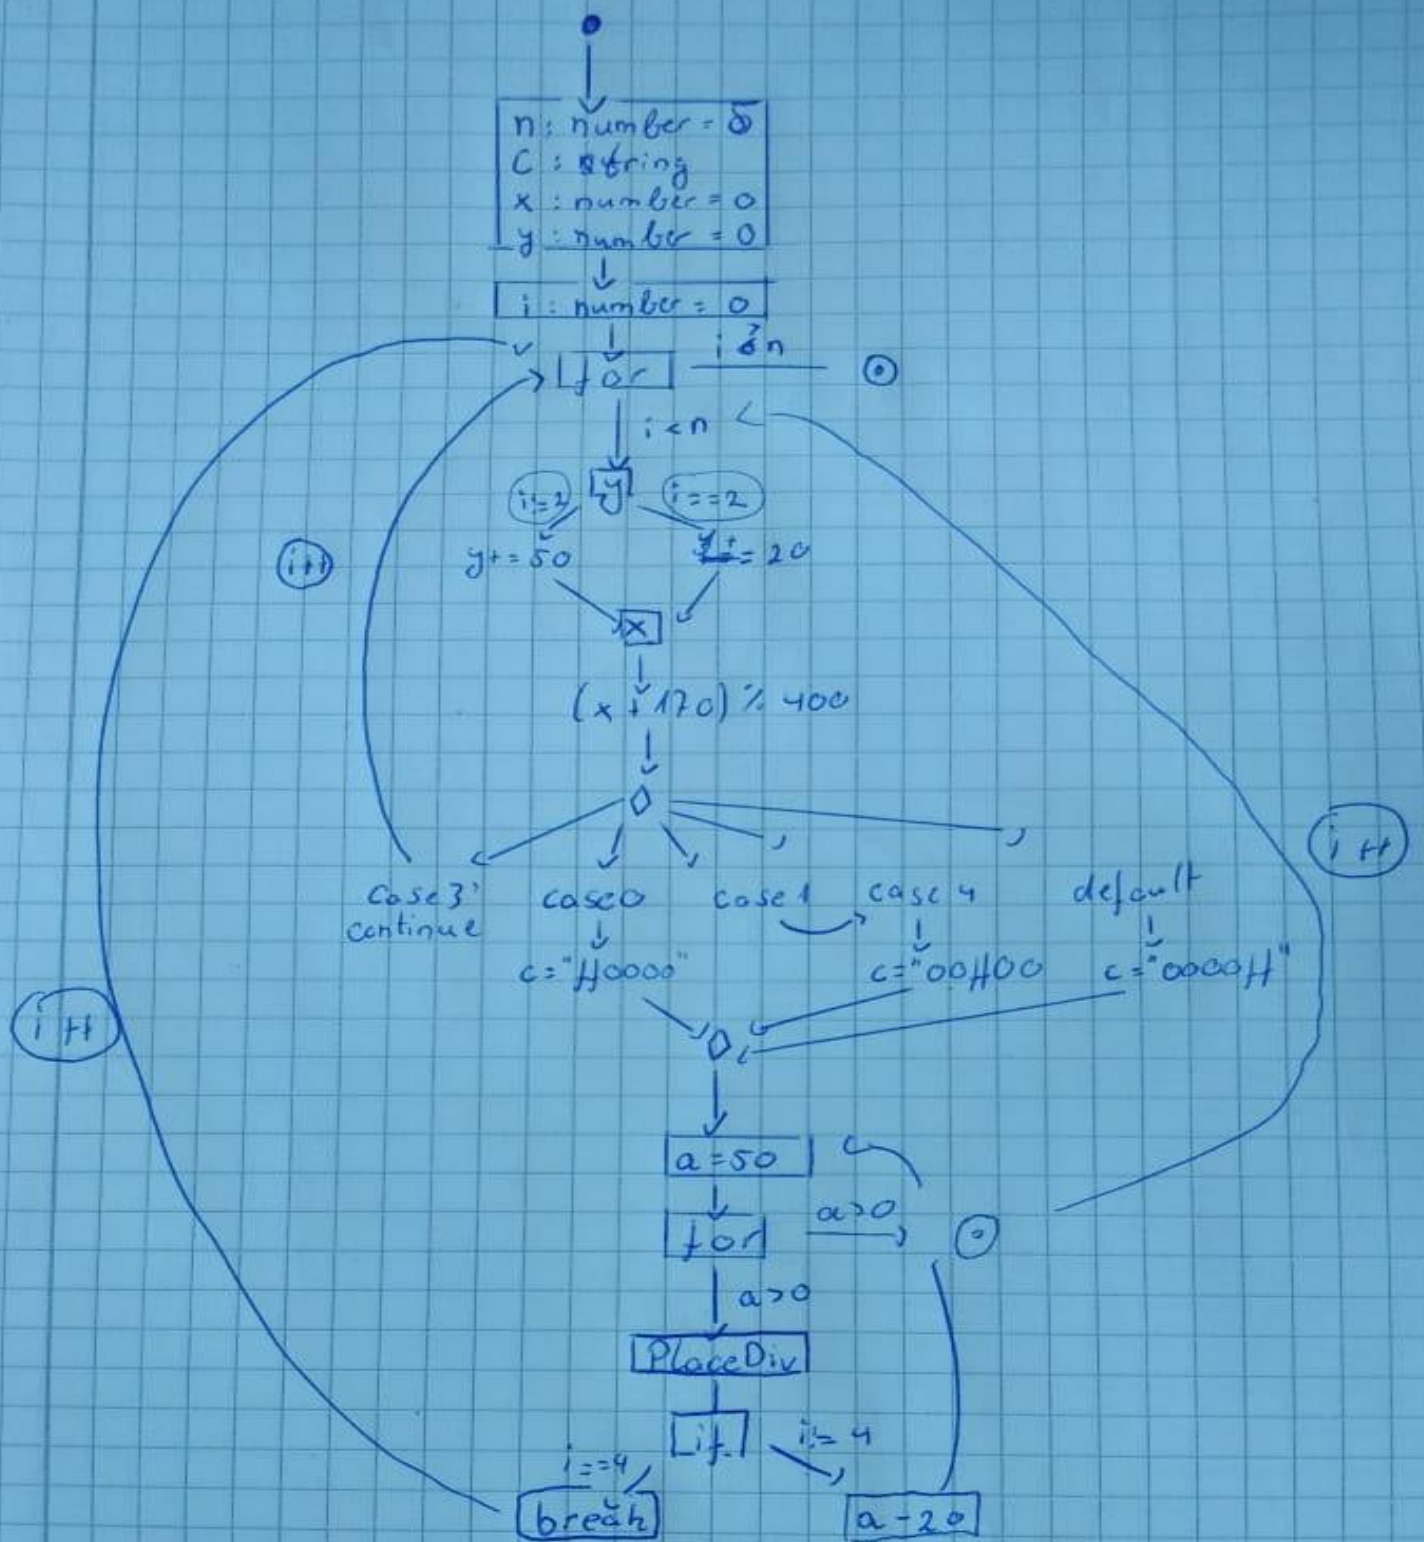 n : number = 8
c : string
x : number = 0
y : number = 0
i : number = 0
for
i ≥ n
i < n
i!=2
y
i==2
i++
y+=50
y+=20
x
(x + 170) % 400
i++
case 3:
continue
case 0
case 1
case 4
default
c="#0000"
c="00#00
c="0000#"
i++
a=50
for
a>0
a>0
PlaceDiv
if
i!=4
i==4
break
a-20